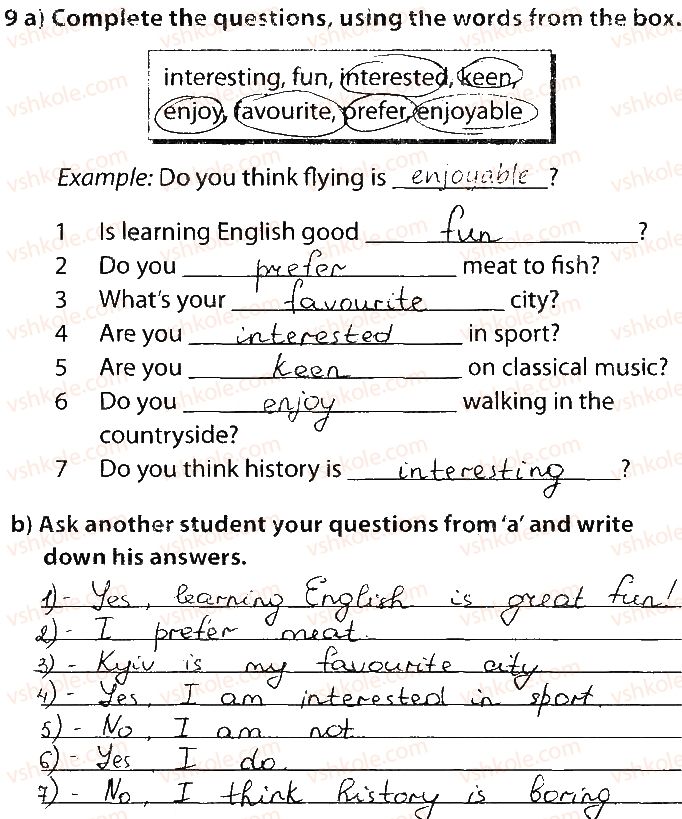 9 a) Complete the questions, using the words from the box.
interesting, fun, interested, keen,
enjoy, favourite, prefer, enjoyable
Example: Do you think flying is enjoyable ?
1 Is learning English good fun ?
2 Do you prefer meat to fish?
3 What's your favourite city?
4 Are you interested in sport?
5 Are you keen on classical music?
6 Do you enjoy walking in the
countryside?
7 Do you think history is interesting ?
b) Ask another student your questions from 'a' and write
down his answers.
1) - Yes, learning English is great fun!
2) - I prefer meat.
3) - Kyiv is my favourite city.
4) - Yes, I am interested in sport.
5) - No, I am not.
6) - Yes I do.
7) - No, I think history is boring
vshkole.com